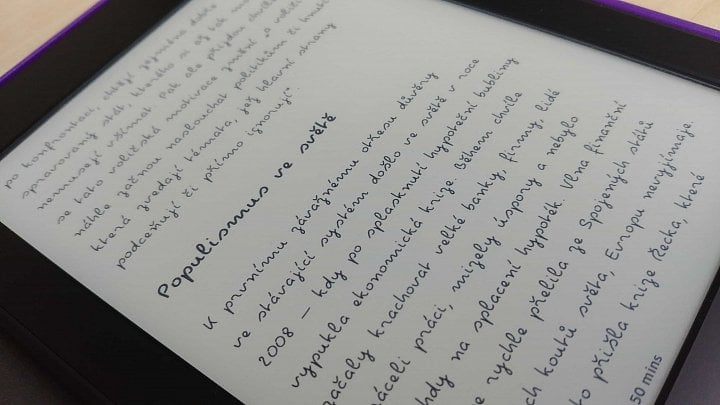 po konfrontaci, chtějí zejména dobře
spravovaný stát, kterého si až tak moc
nemusejí všímat. Pak ale přijdou chvíle,
se tato voličská motivace změní a voliči
náhle začnou naslouchat politikům či hnutí
která zvedají témata, jež hlavní strany
podceňují či přímo ignorují“.
Populismus ve světě
K prvnímu závažnému otřesu důvěry
ve stávající systém došlo ve světě v roce
2008 – kdy po splasknutí hypoteční bubliny
vypukla ekonomická krize. Během chvíle
začaly krachovat velké banky, firmy, lidé
áceli práci, mizely úspory a nebylo
hdy na splacení hypoték. Vlna finanční
e rychle přelila ze Spojených států
ch koutů světa, Evropu nevyjímaje.
to přišla krize Řecka, které
50 mins